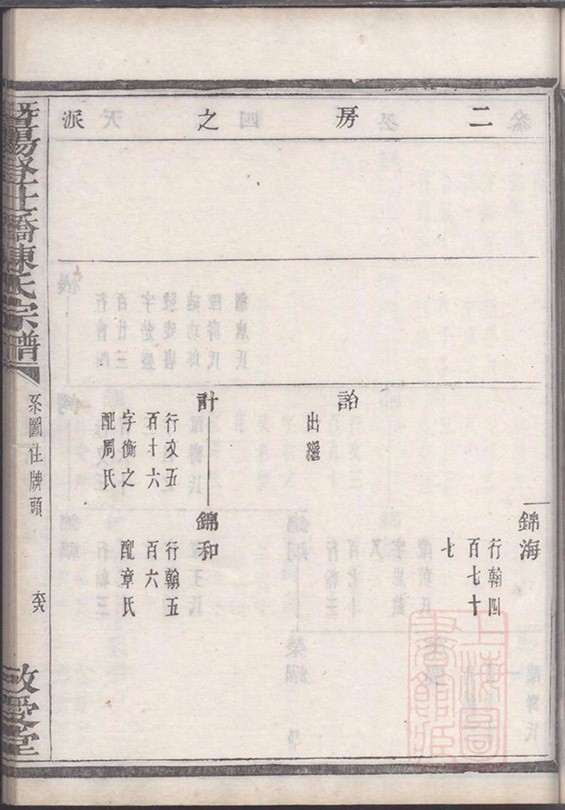 二房之派
錦海
行翰四
百七十
七
詒
出繼
計
行文五
百十六
字衡之
配周氏
錦和
行翰五
百六
配章氏
暨陽啓仕橋陳氏宗譜
系圖往牌頭
敬愛堂
上海圖書館藏